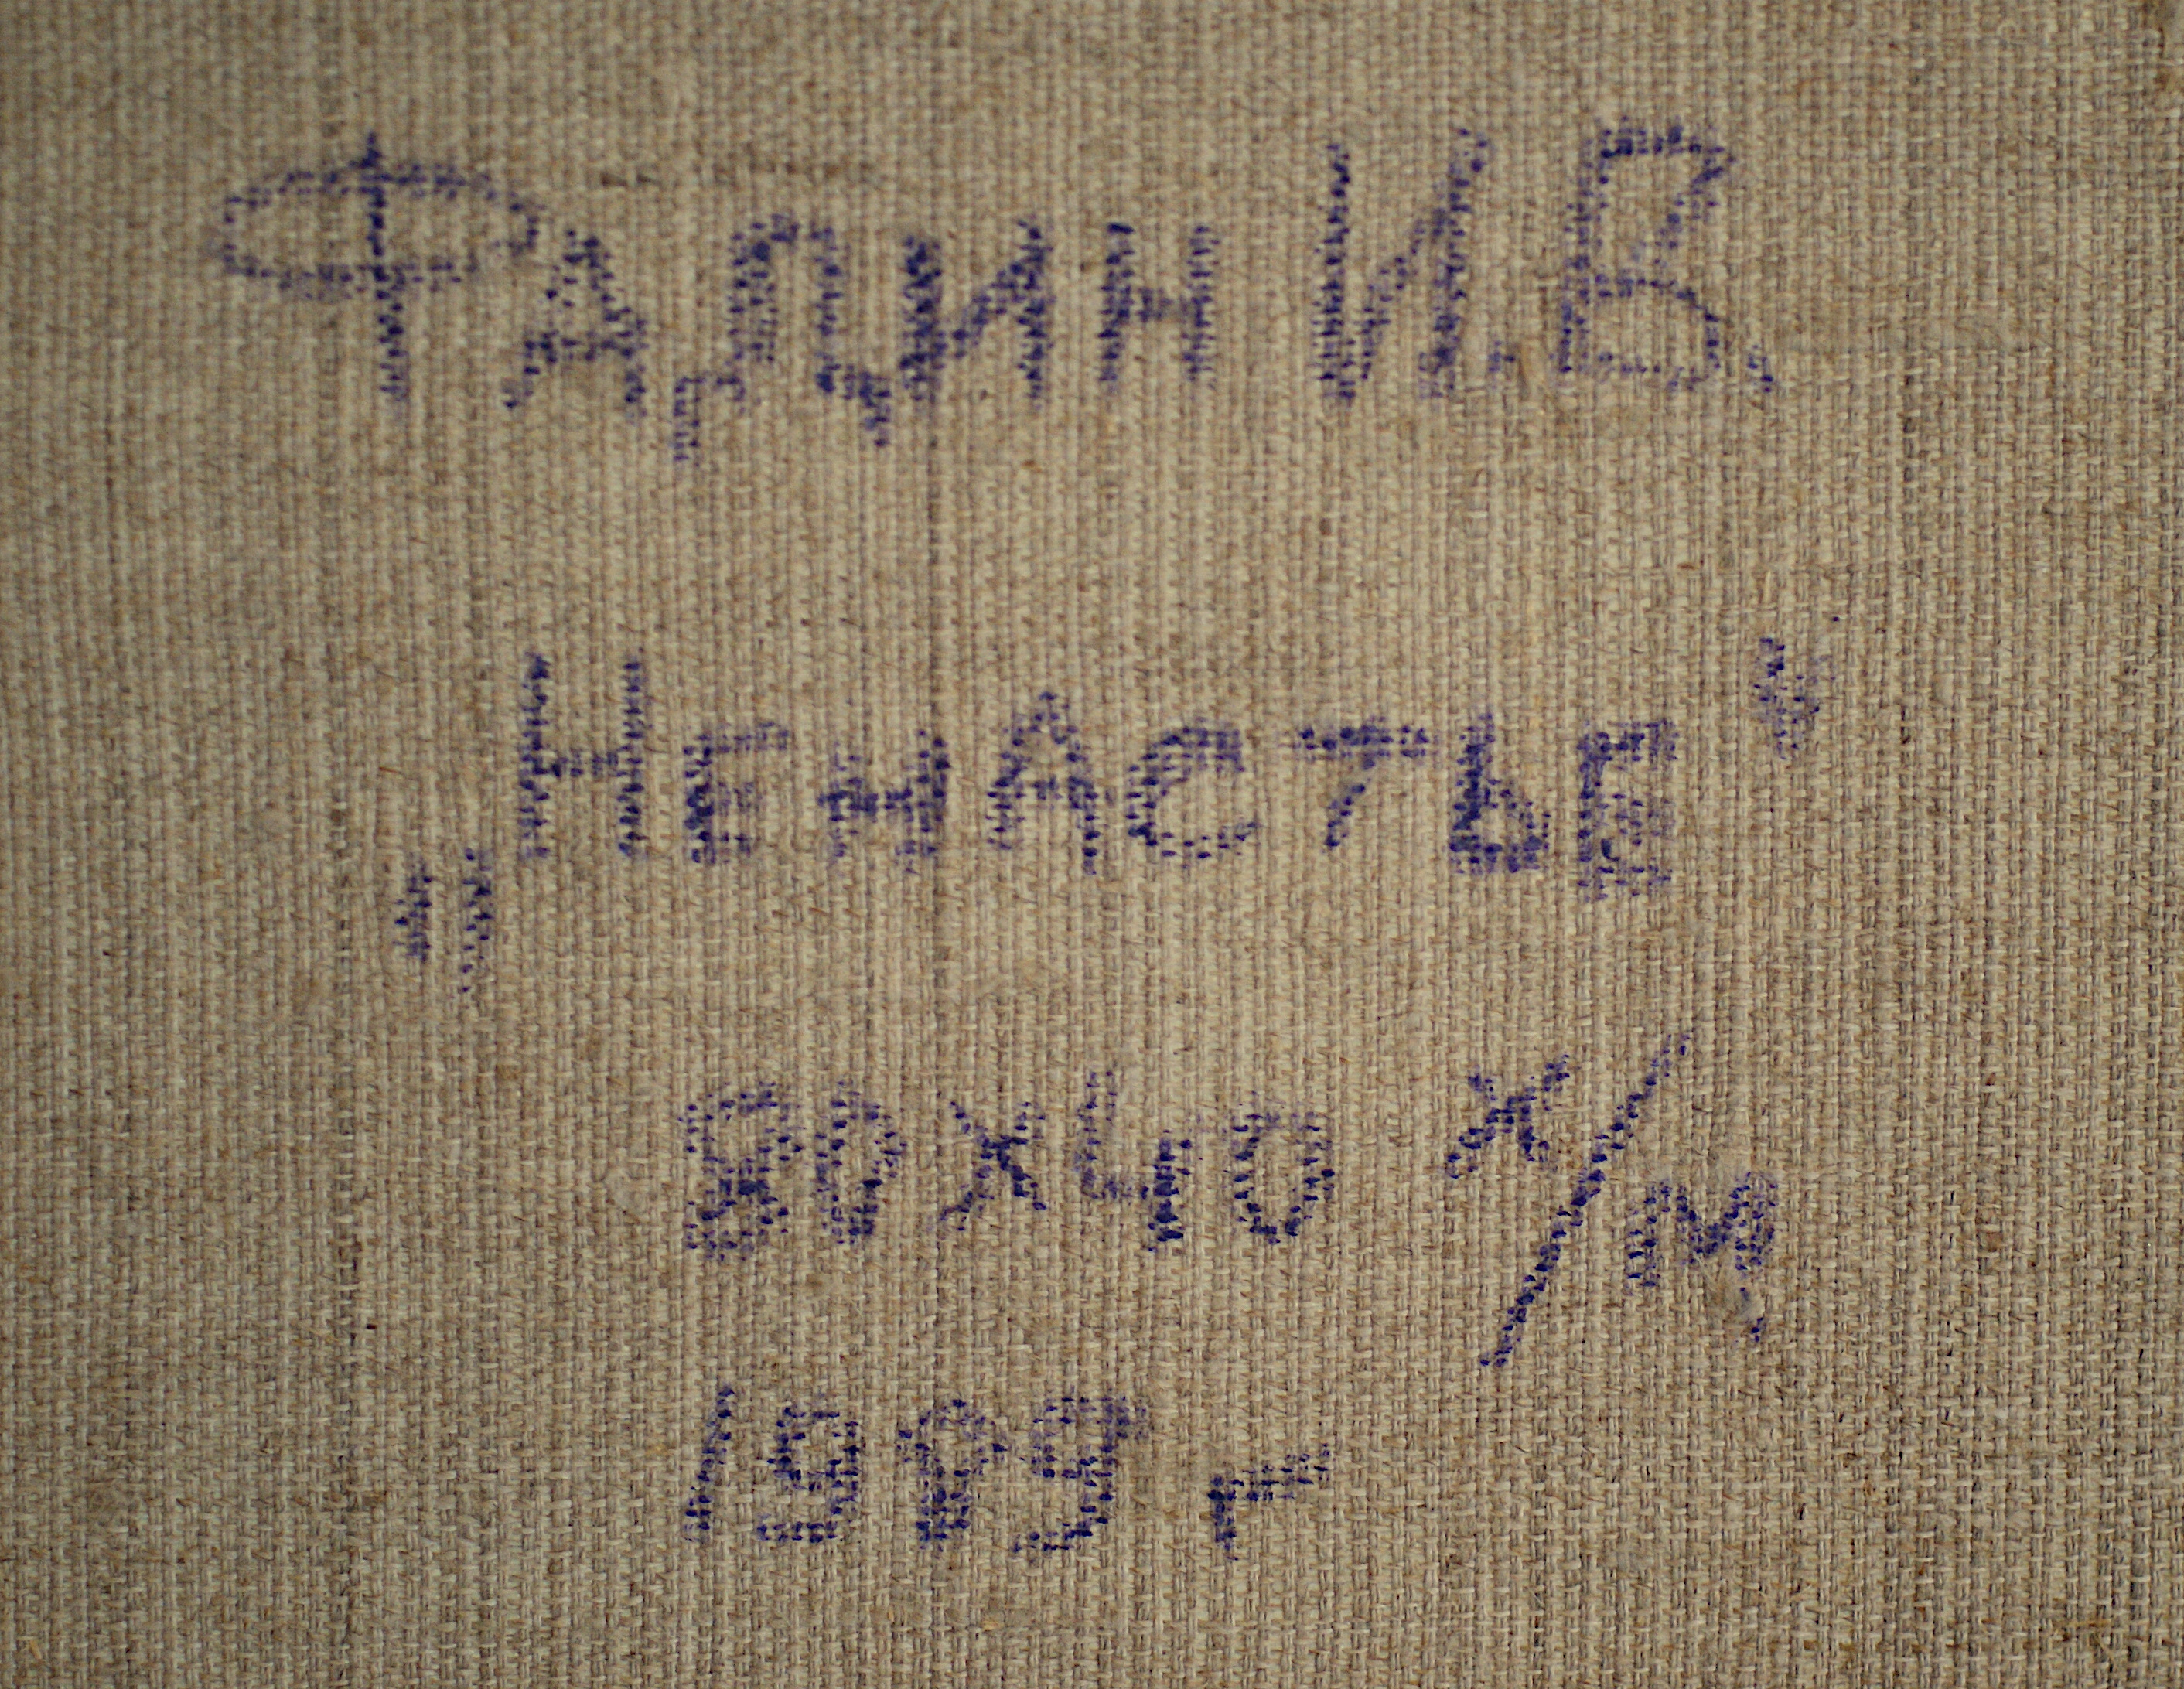 Фадин И.В.
„Ненастье"
80х40 х/м
1989 г